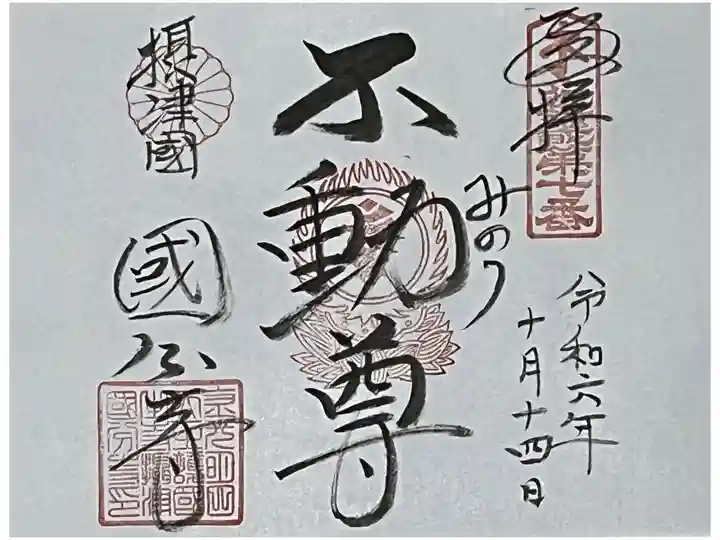 奉拝
令和六年
十月十四日
みのり
不動尊
摂津國
國分寺